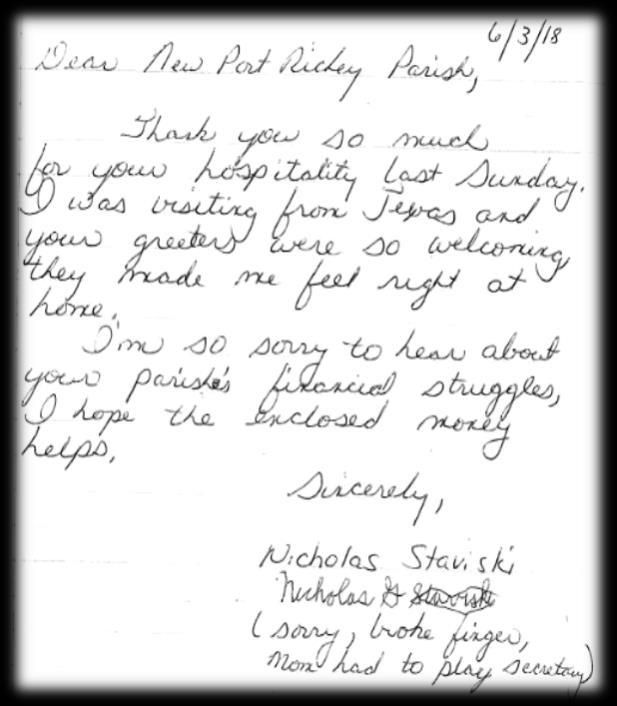 6/3/18
Dear New Port Richey Parish,
Thank you so much
for your hospitality last Sunday.
I was visiting from Texas and
your greeters were so welcoming
they made me feel right at
home.
I'm so sorry to hear about
your parish's financial struggles,
I hope the enclosed money
helps.
Sincerely,
Nicholas Staviski
Nicholas G Staviski
(sorry, broke finger,
Mom had to play secretary)